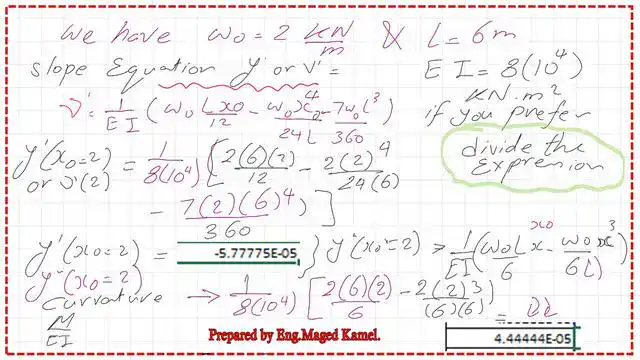 We have w₀ = 2 KN/m & L = 6m
Slope Equation y' or v' =
E I = 8(10⁴) KN.m²
v' = 1/EI (w₀Lx₀/12 - w₀x⁴₀/24L - 7w₀L³/360)
if you prefer
divide the
Expression
y'(x₀=2) or v'(2) = 1/8(10⁴) [2(6)(2)/12 - 2(2)⁴/24(6)
- 7(2)(6)⁴)/360]
y'(x₀=2) = -5.77775E-05
y''(x₀=2) → 1/EI (w₀L x₀/6 - w₀x³/6L)
y''(x₀=2)
Curvature
M/EI
→ 1/8(10⁴) [2(6)(2)/6 - 2(2)³/(6)(6)] =
4.44444E-05
Prepared by Eng.Maged Kamel.